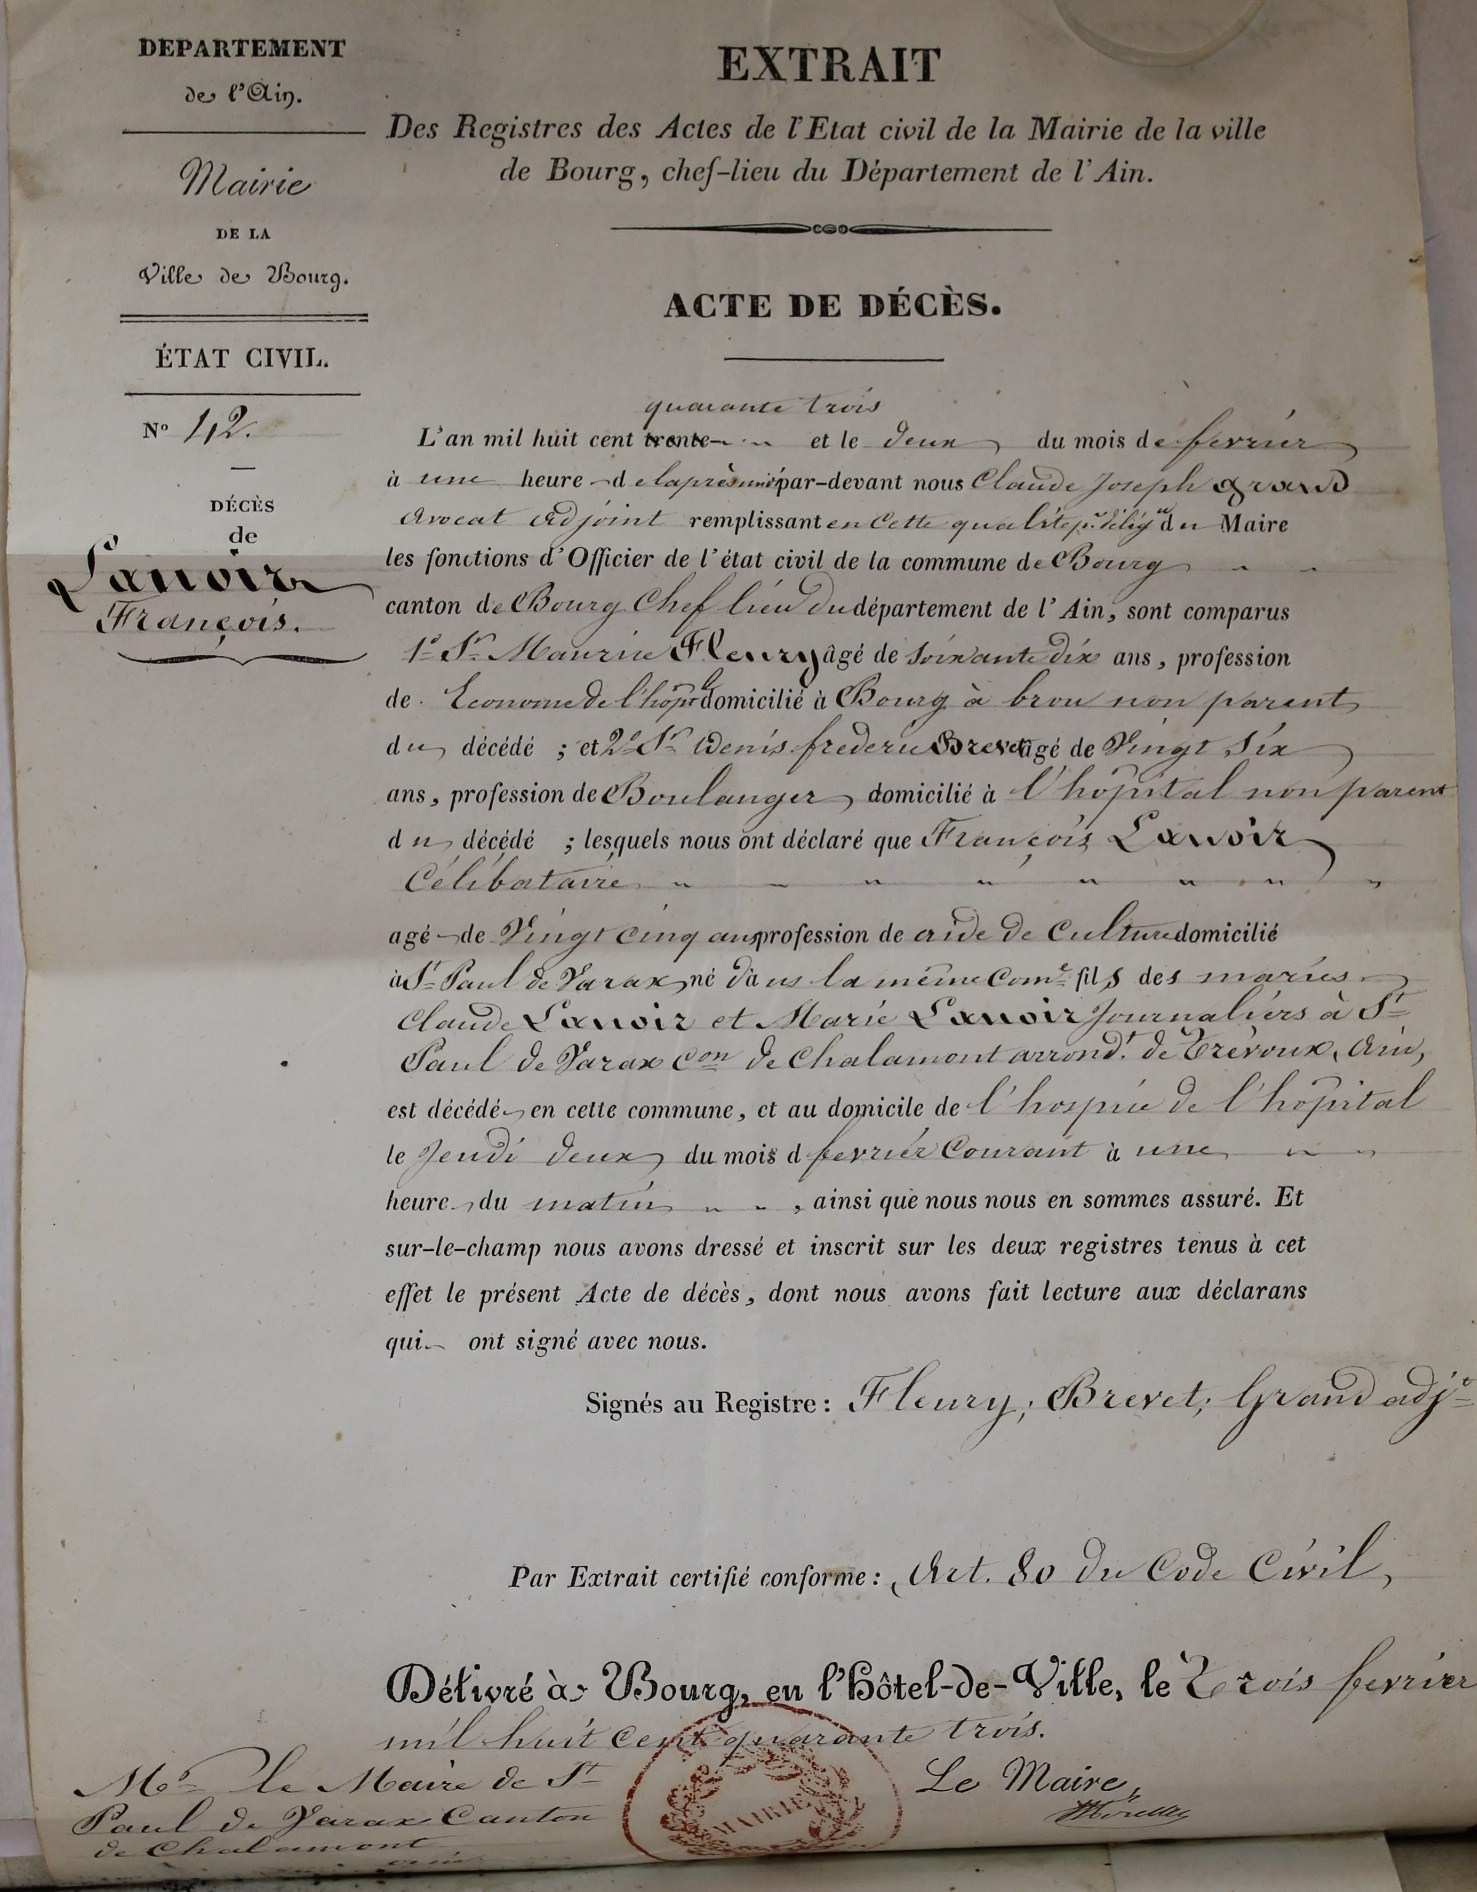 DEPARTEMENT
de l'Ain.
Mairie
DE LA
Ville de Bourg.
ÉTAT CIVIL.
N° 42.
DÉCÈS
de
Lanoir
François.
EXTRAIT
Des Registres des Actes de l'Etat civil de la Mairie de la ville
de Bourg, chef-lieu du Département de l'Ain.
ACTE DE DÉCÈS.
quarante trois
L'an mil huit cent trente et le deux du mois de fevrier
à une heure de laprèsmidi par-devant nous Claude Joseph Grand
Avocat Adjoint remplissant en cette qualité pr délégn du Maire
les fonctions d'Officier de l'état civil de la commune de Bourg
canton de Bourg Chef lieu du département de l'Ain, sont comparus
1° Sr Maurice Fleury âgé de soixante dix ans, profession
de Econome de l'hôpal domicilié à Bourg à brou non parent
du décédé ; et 2° Sr Denis frederic Brevet âgé de Vingt Six
ans, profession de Boulanger domicilié à l'hôpital non parent
du décédé ; lesquels nous ont déclaré que François Lanoir
Célibataire
agé de Vingt cinq ans profession de aide de Culture domicilié
à St Paul de Varax né dans la même Come fils des mariés
Claude Lanoir et Marie Lanoir Journaliers à St
Paul de Varax Con de Chalamont arrondt de Trévoux, Ain,
est décédé en cette commune, et au domicile de l'hospice de l'hôpital
le Jeudi deux du mois d fevrier Courant à une
heure du matin , ainsi que nous nous en sommes assuré. Et
sur-le-champ nous avons dressé et inscrit sur les deux registres tenus à cet
effet le présent Acte de décès, dont nous avons fait lecture aux déclarans
qui ont signé avec nous.
Signés au Registre : Fleury ; Brevet ; Grand adjt
Par Extrait certifié conforme : Art. 80 du Code Civil,
Délivré à Bourg, en l'Hôtel-de-Ville, le Trois fevrier
mil huit cent quarante trois.
Mr le Maire de St
Paul de Varax Canton
de Chalamont
Ain
Le Maire,
MAIRIE